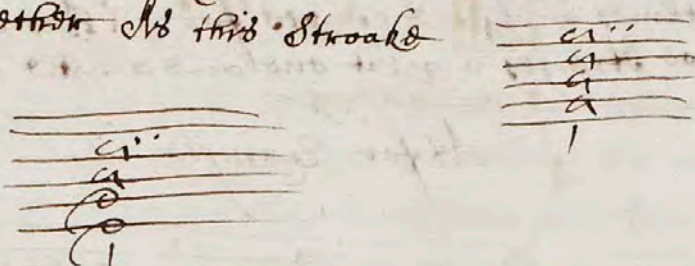 ether As this Stroake
a
a
a
a
a
a